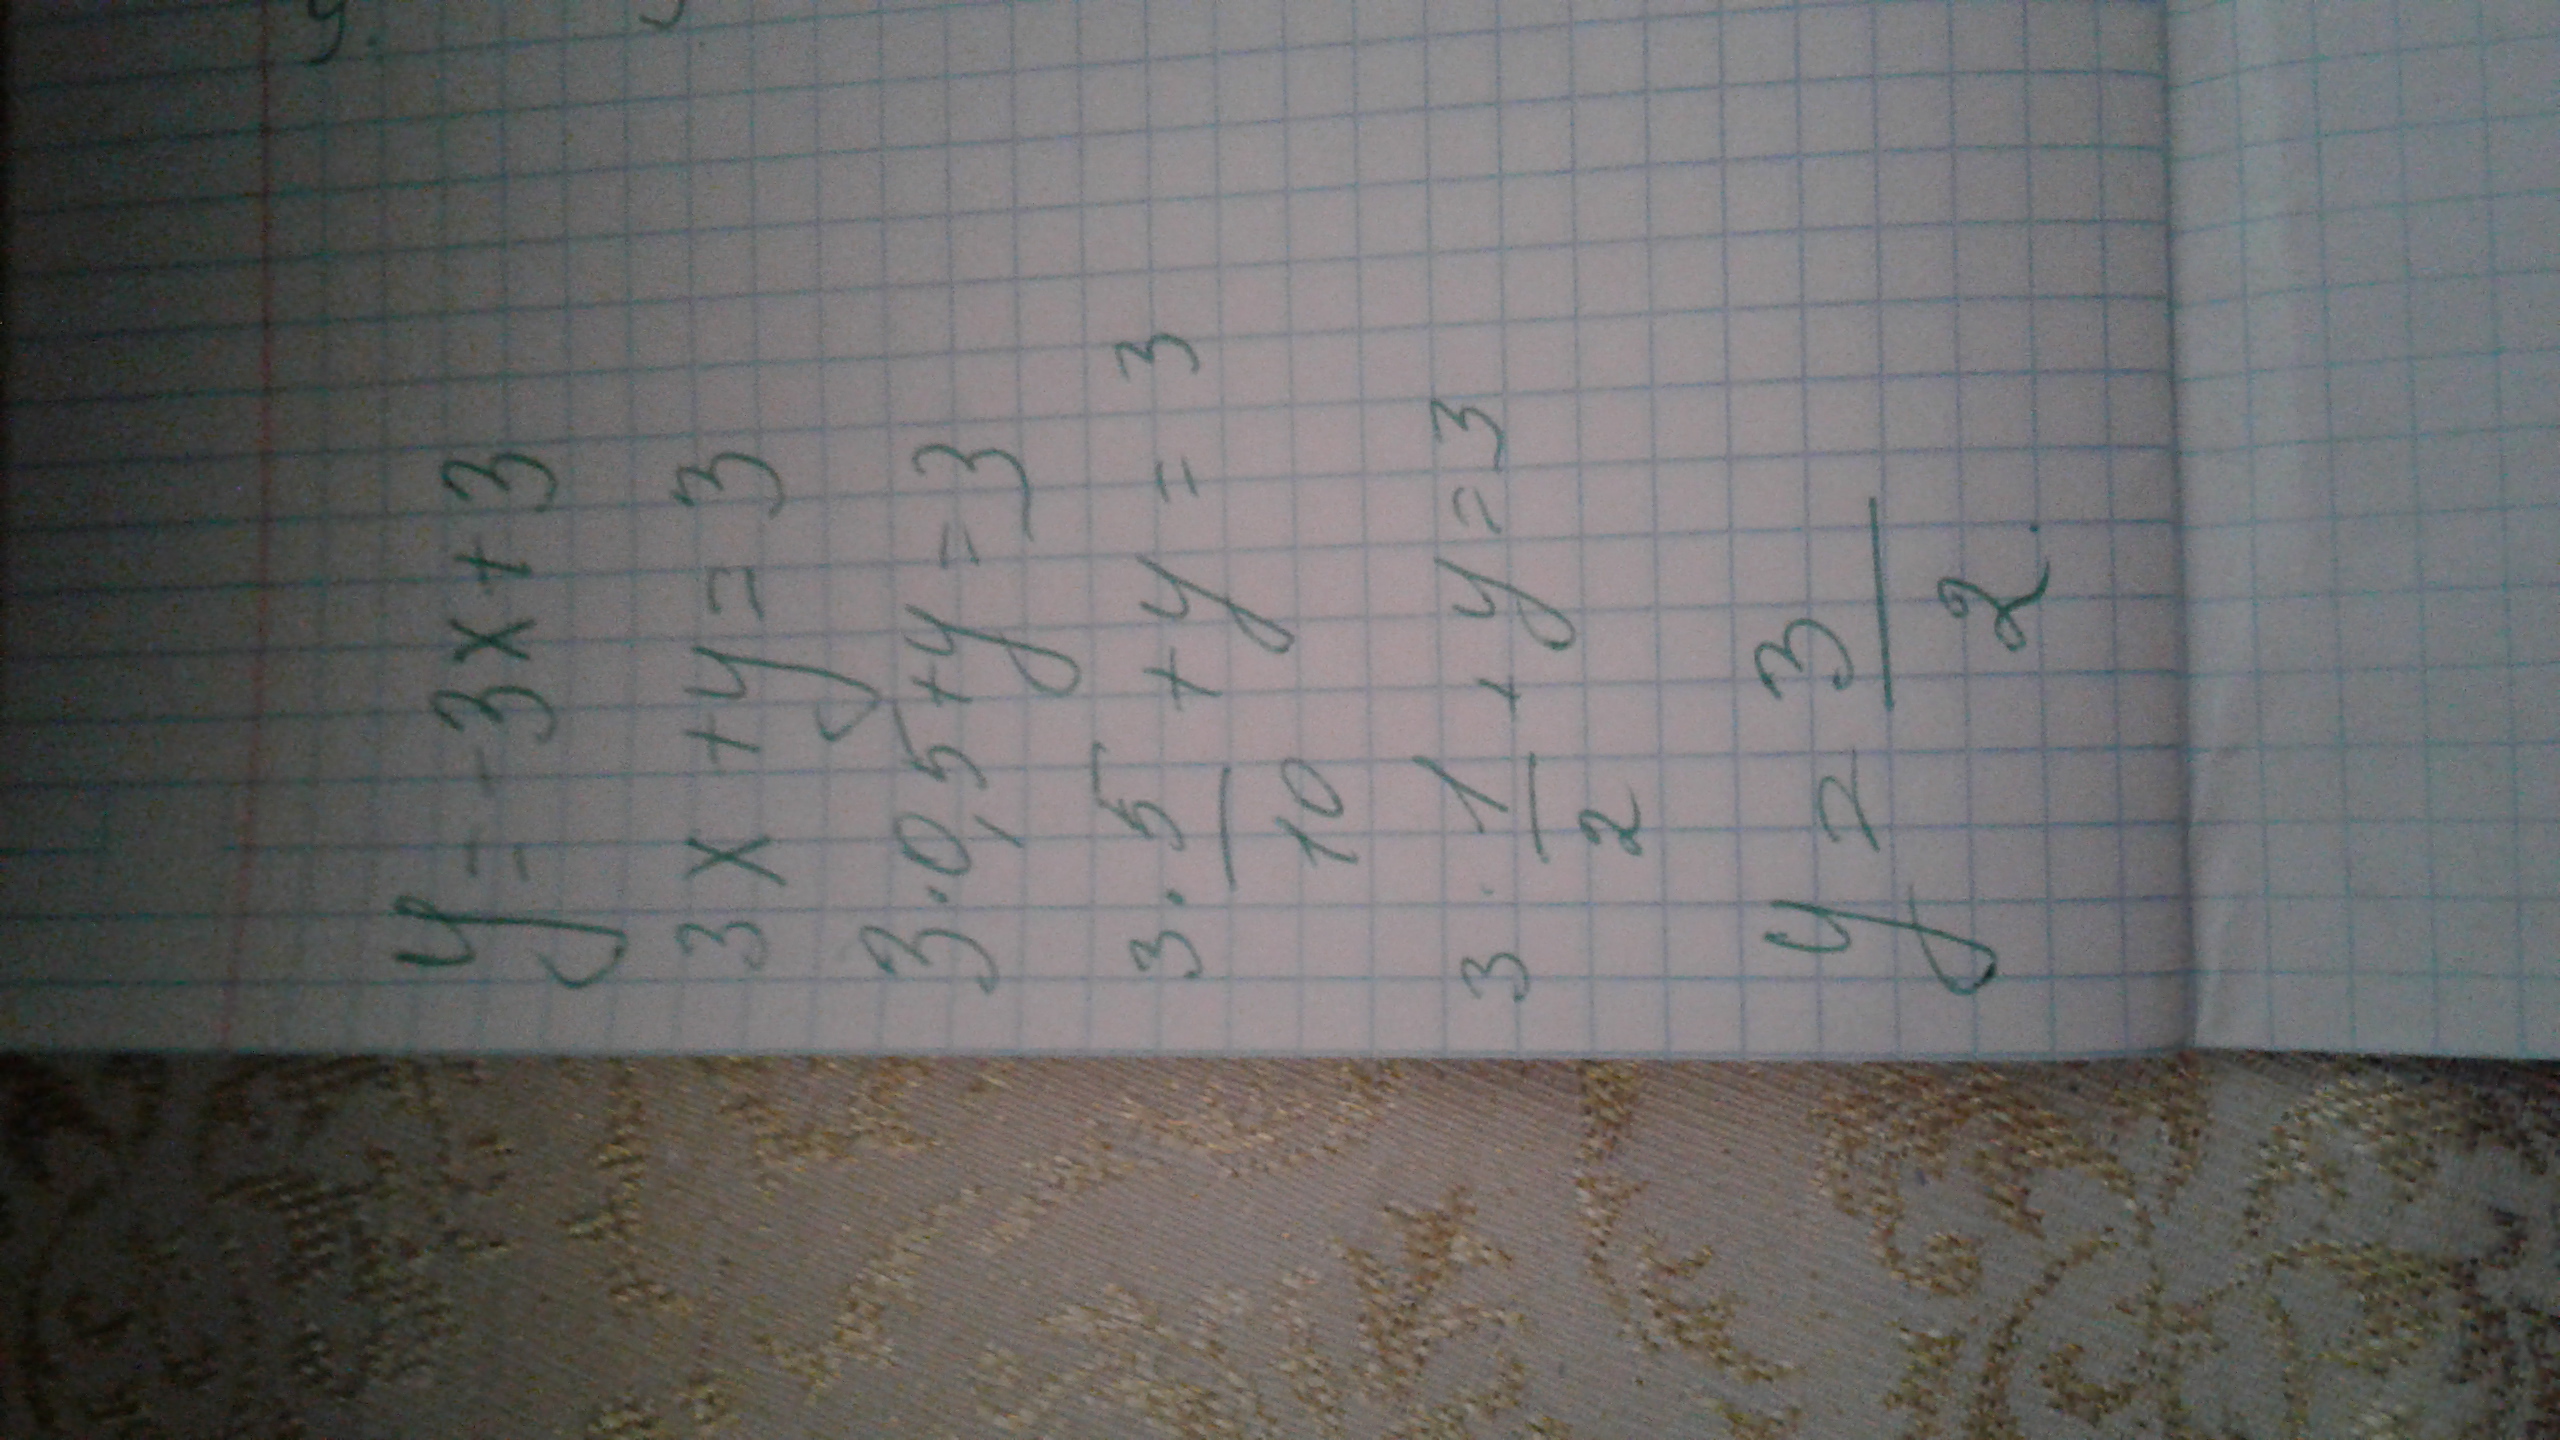 y = -3x + 3
3x + y = 3
3 · 0,5 + y = 3
3 · 5/10 + y = 3
3 · 1/2 + y = 3
y = 3/2.